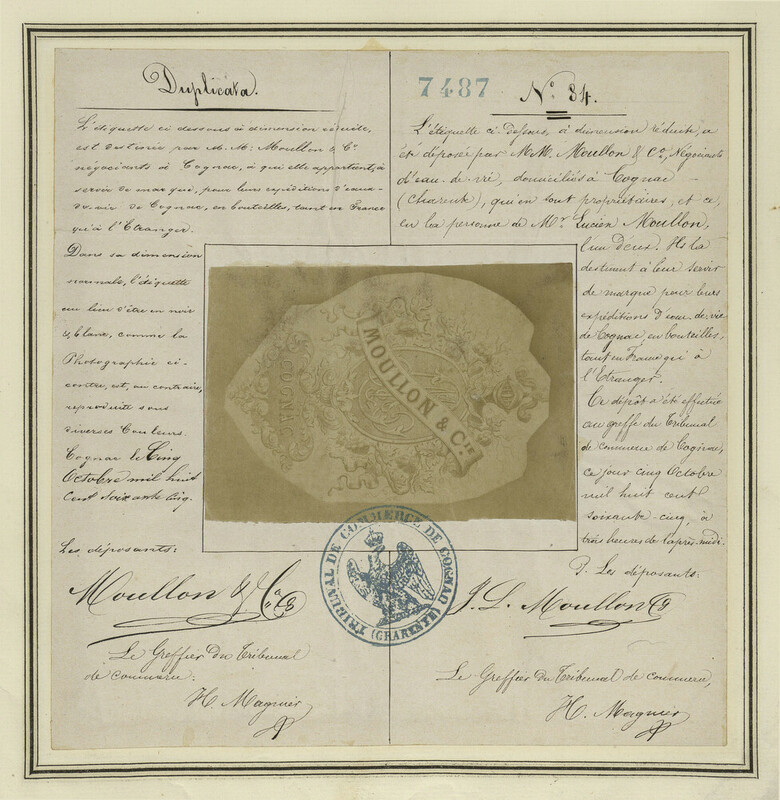 Duplicata.
L'étiquette ci dessous à dimension réduite,
est destinée par M.M. Moullon & Cie
négociants à Cognac, à qui elle appartient, à
servir de marque, pour leurs expéditions d'eaux-
de-vie de Cognac, en bouteilles, tant en France
qu'à l'Etranger.
Dans sa dimension
normale, l'étiquette
au lieu d'être en noir
& blanc, comme la
Photographie ci-
contre, est, au contraire,
reproduite sous
diverses Couleurs.
Cognac le Cinq
Octobre mil huit
Cent soixante cinq.
Les déposants:
Moullon & Cie
Le Greffier du Tribunal
de commerce:
H. Magnier
7487
No. 34.
L'étiquette ci-dessous, à dimension réduite, a
été déposée par M.M. Moullon & Co, Négociants
d'eau-de-vie, domiciliés à Cognac
(Charente), qui en sont propriétaires, et ce,
en la personne de Mr. Lucien Moullon,
l'un d'eux. Ils la
destinent à leur servir
de marque pour leurs
expéditions d'eau-de-vie
de Cognac, en bouteilles,
tant en France qu'à
l'Etranger.
Ce dépôt a été effectué
au greffe du Tribunal
de commerce de Cognac,
ce jour cinq Octobre
mil huit cent
soixante-cinq, à
trois heures de l'après-midi.
Les déposants:
J. L. Moullon
Le Greffier du Tribunal de commerce,
H. Magnier
MOULLON & Cie
COGNAC
TRIBUNAL DE COMMERCE DE COGNAC
(CHARENTE)